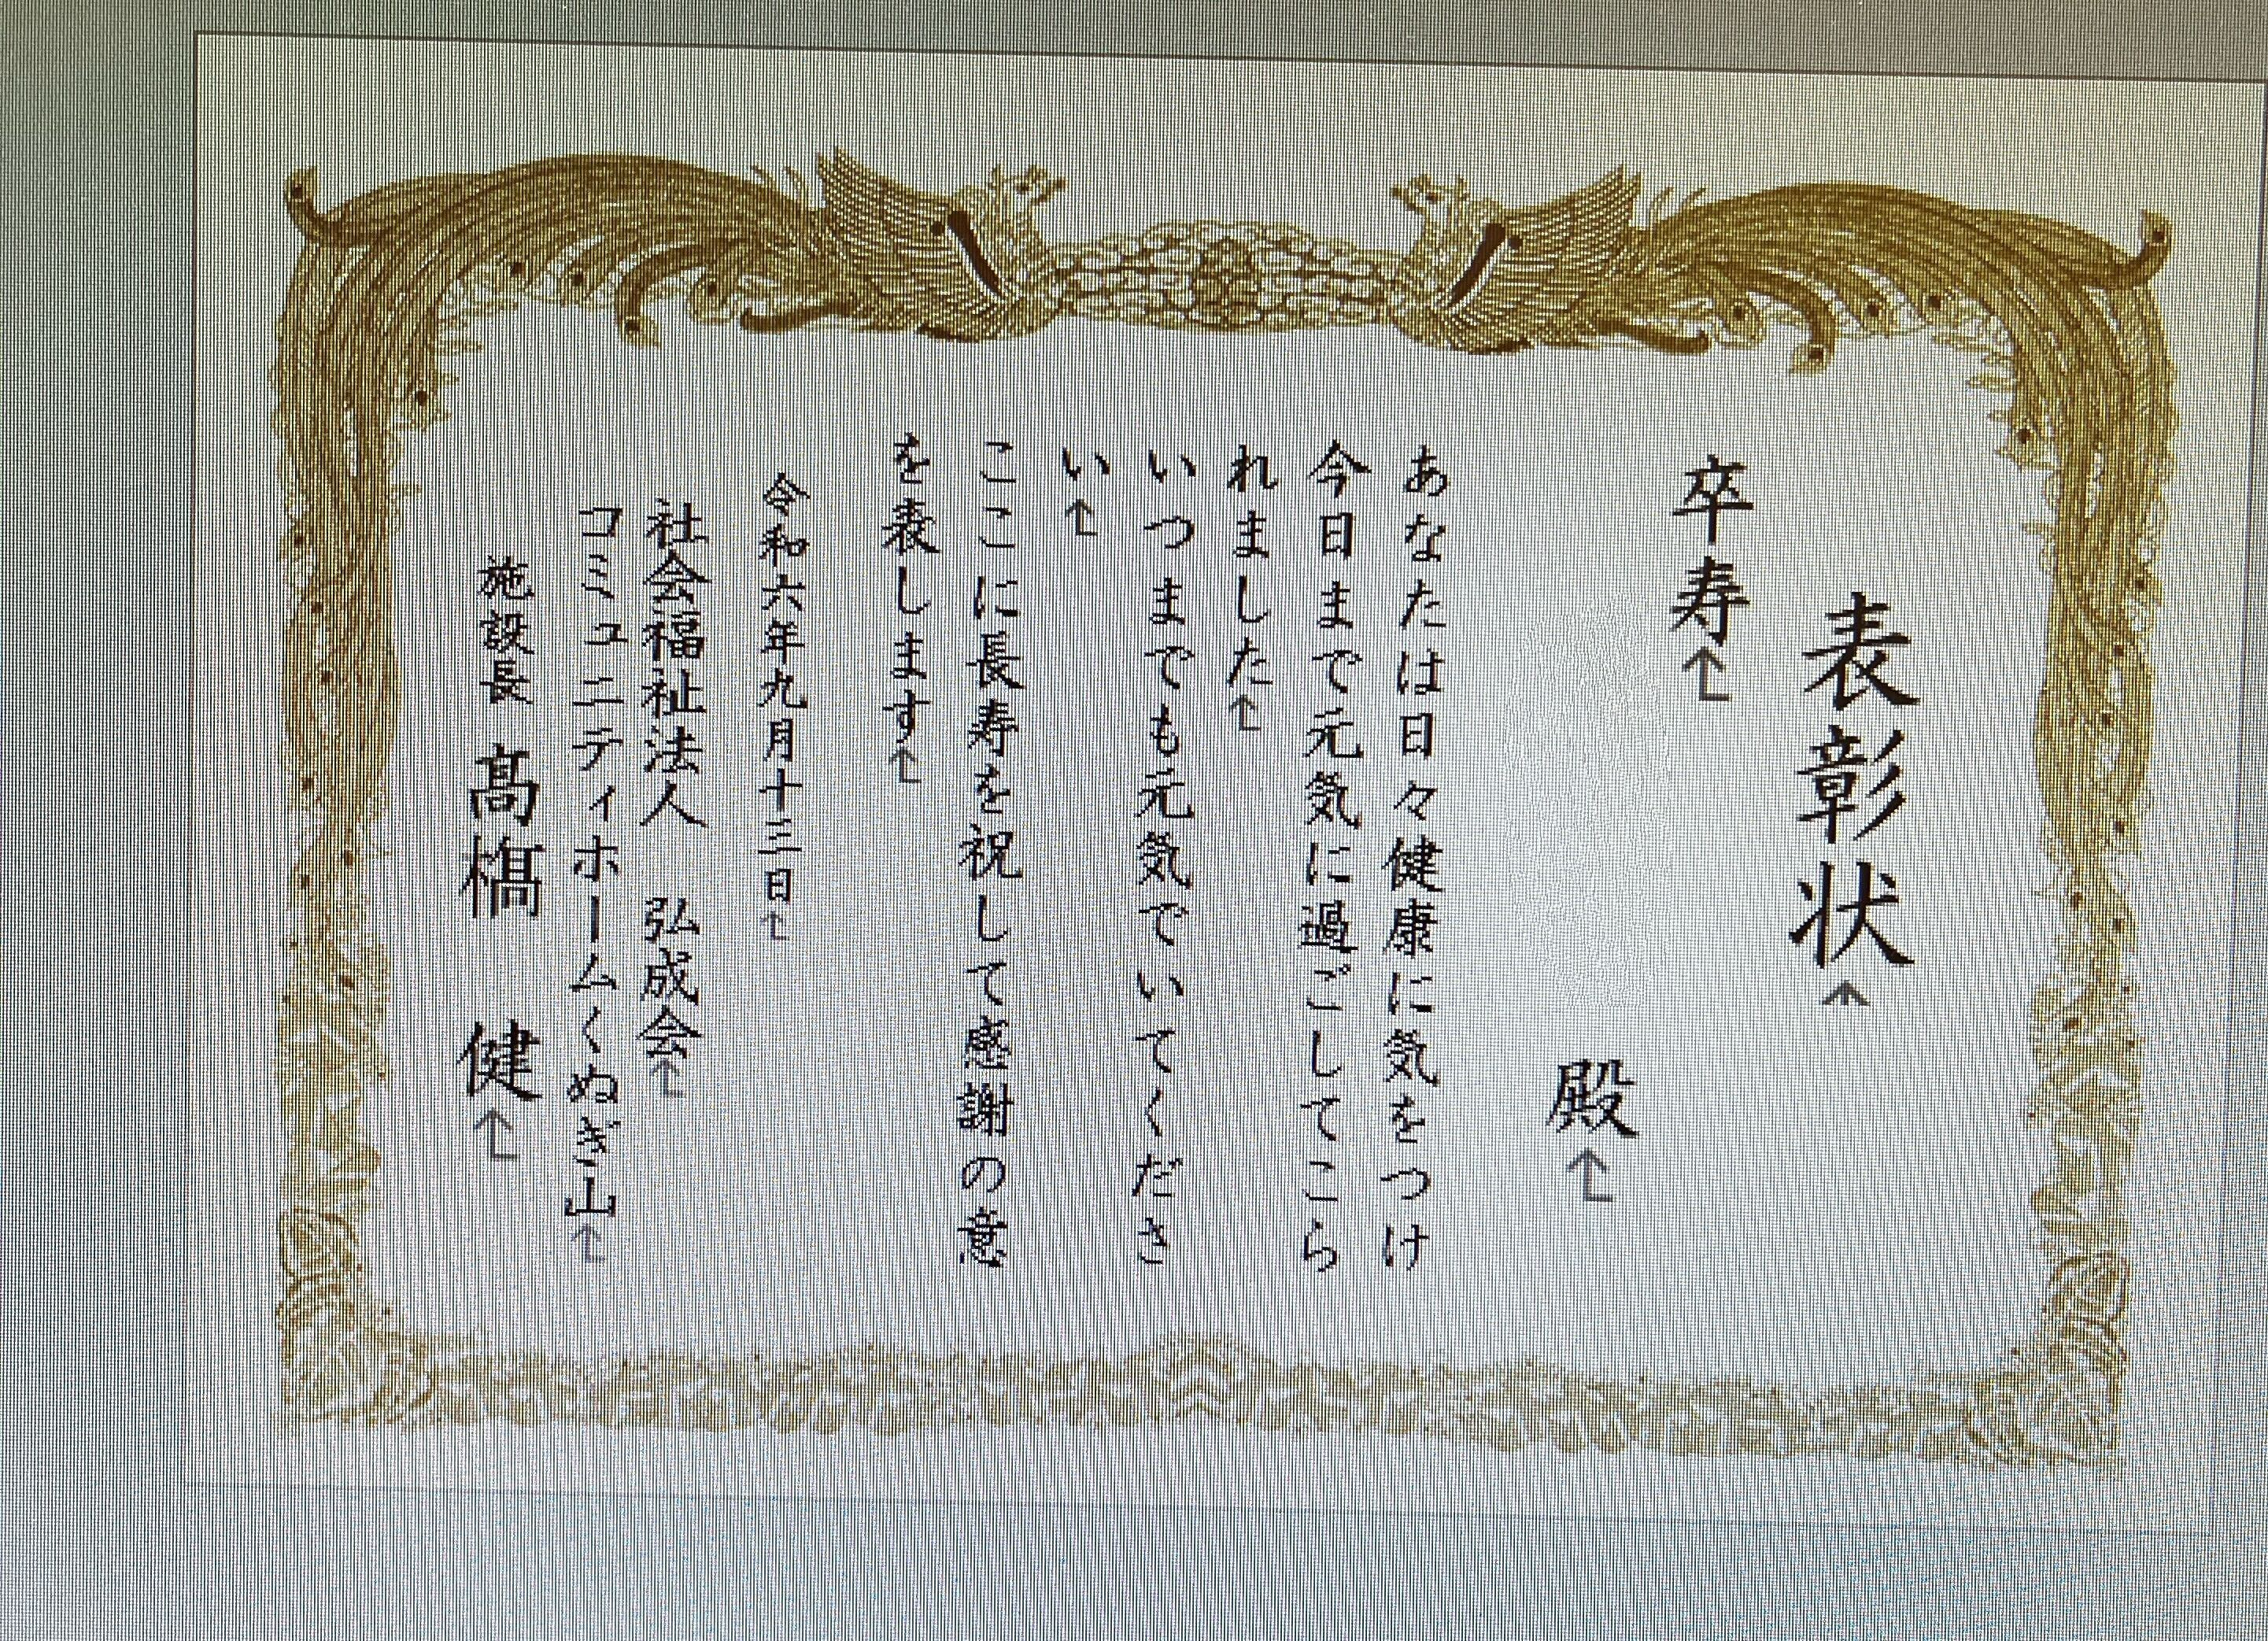 表彰状
卒寿
殿
あなたは日々健康に気をつけ
今日まで元気に過ごしてこら
れました
いつまでも元気でいてくださ
い
ここに長寿を祝して感謝の意
を表します
令和六年九月十三日
社会福祉法人　弘成会
コミュニティホームくぬぎ山
施設長　髙槗　健